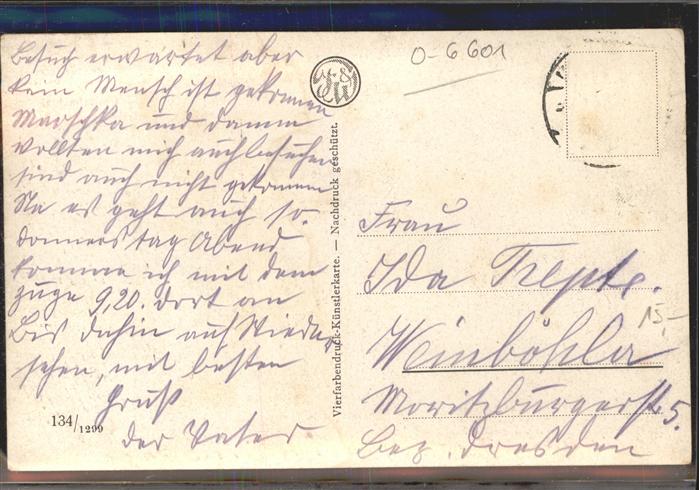 Besuch erwartet aber
kein Mensch ist gekommen
Marschka und Damm
wollten mich auch besuchen
sind auch nicht gekommen
Na es geht auch so.
Donnerstag Abend
komme ich mit dem
Zuge 9,20. dort an
Bis dahin auf Wieder
sehen, mit besten
Gruß
der Vater
134/1299
Vierfarbendruck-Künstlerkarte. — Nachdruck geschützt.
0-6601
Frau
Ida
Weinböhla
Moritzburgerst. 5.
Bez. Dresden
15,-